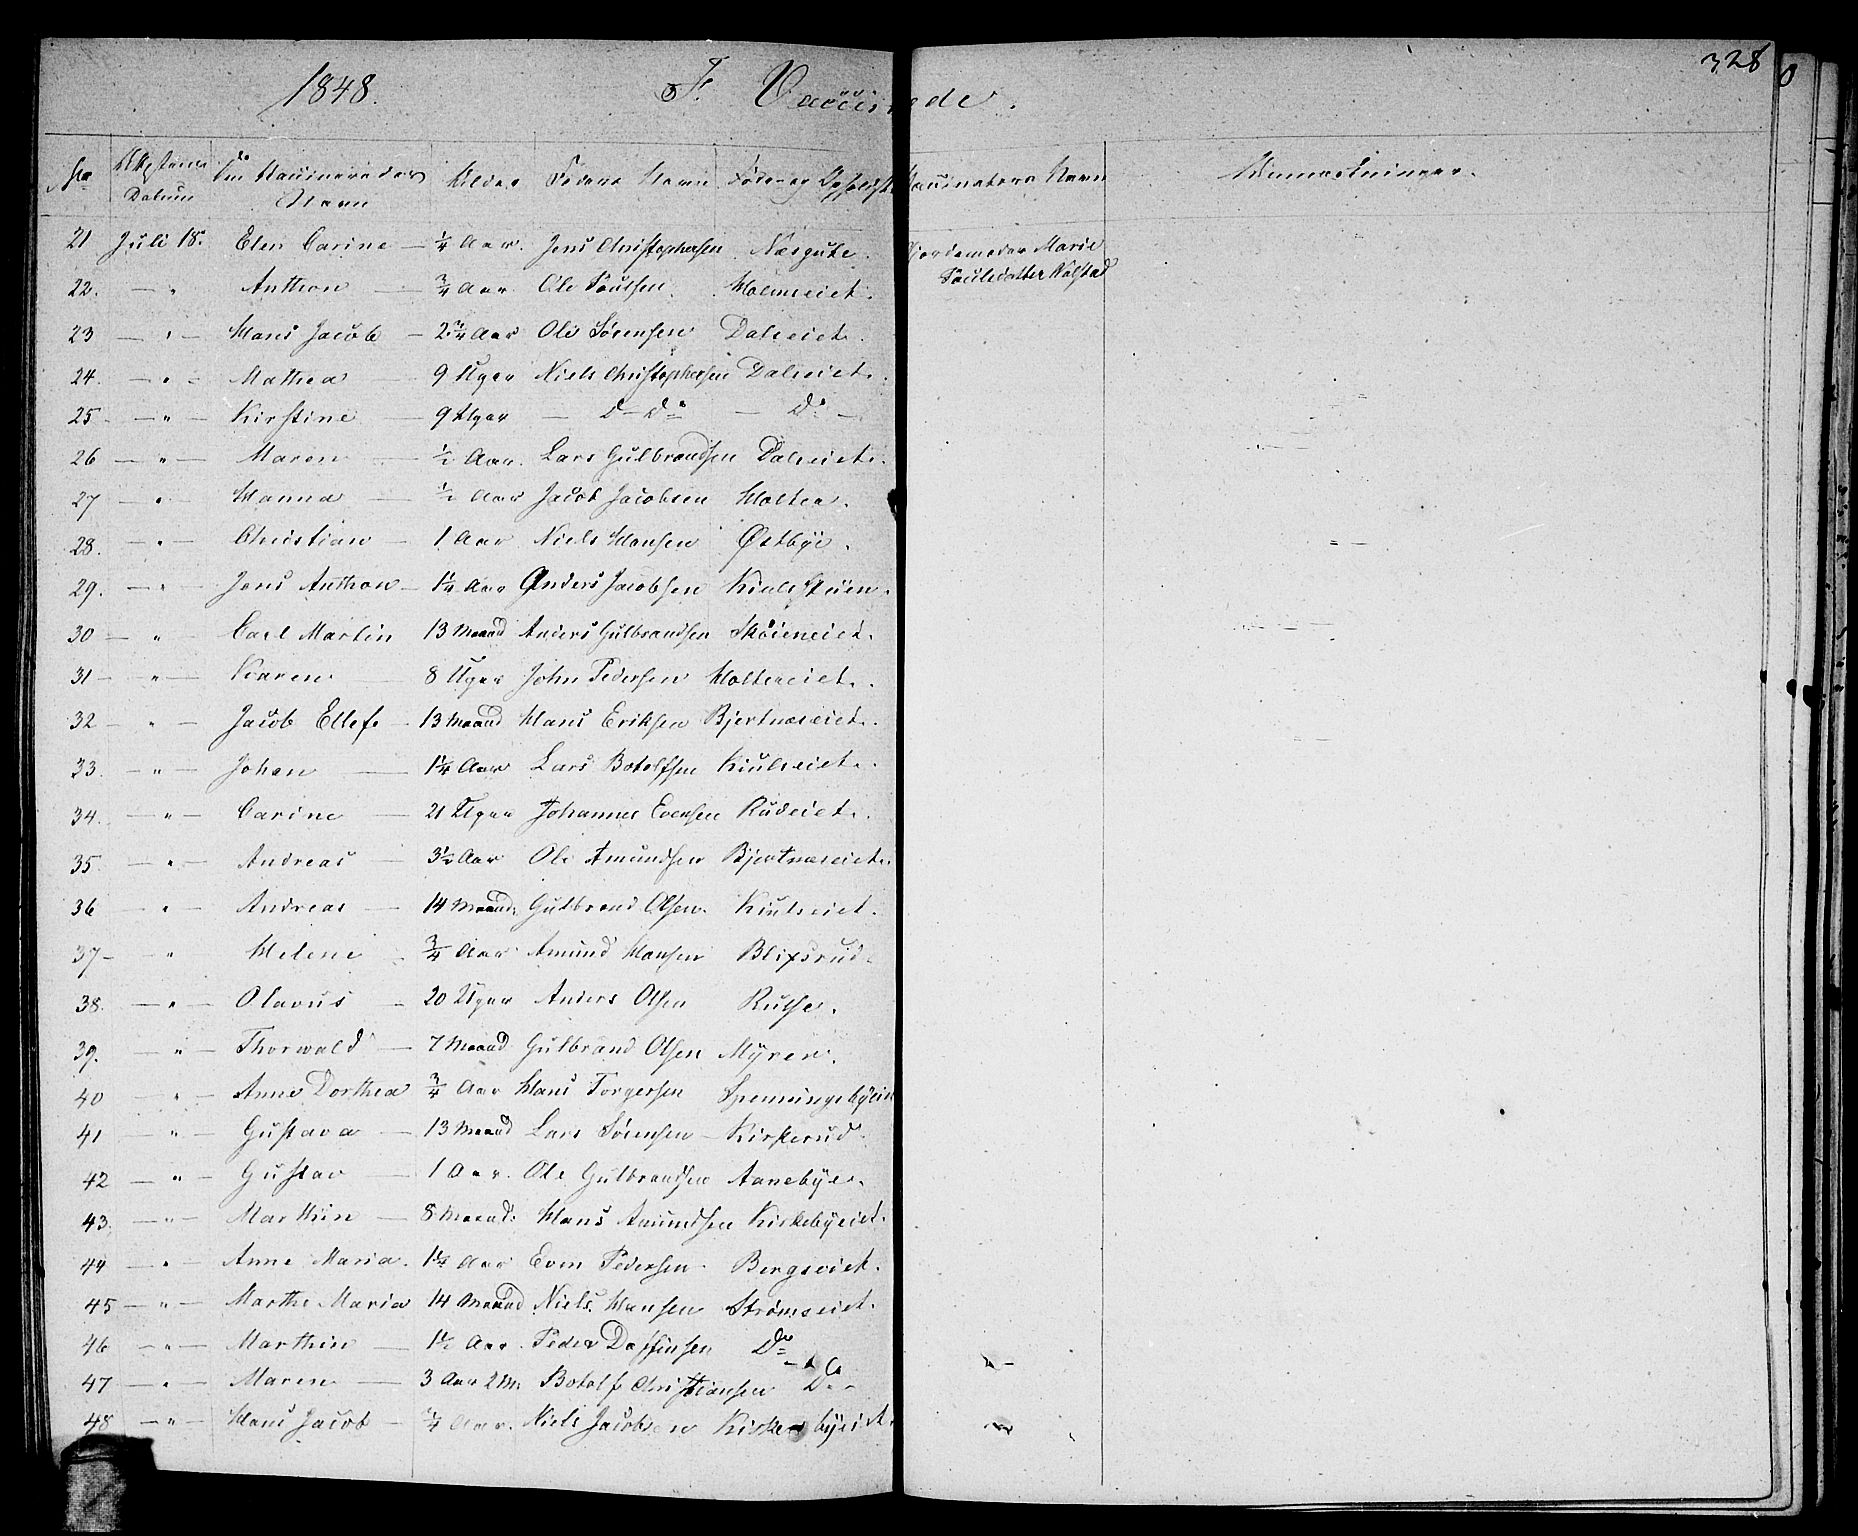 328
1848. F. Vaccinerede.
No Attestens Datum De Vaccineredes Navn Alder Faders Navn Føde- og Opholdst Vaccinators Navn Anmærkninger.
21 Juli 18. Elen Carine — 1/4 Aar. Jens Christophersen Næsgute. Jordemoder Marie
Paulsdatter Kolstad
22. — " Anthon — 3/4 Aar Ole Paulsen. Holmseiet.
23 — " — Hans Jacob — 2 3/4 Aar Ole Sørensen Daleiet.
24. — " — Mathea — 9 Uger Niels Christophersen Daleiet.
25. — " — Kirstine — 9 Uger — D— Do — Do —
26 — " — Maren — 1/2 Aar. Lars Gulbrandsen Daleiet.
27 — " Hanna — 1/2 Aar Jacob Jacobsen Holter.
28. — " — Christian — 1 Aar Niels Hansen Østbye.
29. — " — Jens Anthon — 1 1/4 Aar Anders Jacobsen
30 — " Carl Martin 13 Maaned Anders Gulbrandsen Skøieneiet.
31 — " — Karen 8 Uger John Pedersen Haltereiet.
32 — " — Jacob Ellef — 13 Maaned Hans Eriksen Bjertnæseiet.
33. — " — Johan — 1 1/4 Aar Lars Botolfsen Kiulseiet.
34. — " — Carine — 21 Uger Johannes Evensen Rudeiet.
35. — " — Andreas — 3 1/2 Aar Ole Amundsen Bjertnæseiet.
36 — " Andreas — 14 Maaned: Gulbrand Olsen. Kiulseiet.
37 — " Helene — 3/4 Aar Amund Hansen Blixrud
38. — " — Olavus — 20 Uger Anders Olsen
39. — " — Thorwald — 7 Maaned Gulbrand Olsen Myren.
40 — " — Anne Dorthea 3/4 Aar Hans Torgersen
41 — " Gustava — 13 Maaned Lars Sørensen — Kirkerud.
42 — " — Gustav — 1 Aar. Ole Gulbrandsen Aanebye.
43. — " — Marthin — 8 Maaned: Hans Amundsen Kirkebyeiet.
44 — " — Anne Maria. 1 1/4 Aar Even Pedersen. Bergseiet.
45 — " — Marthe Maria 14 Maaned Niels Hansen Strømseiet.
46 — " — Marthin — 1 1/2 Aar. Peder Daffinsen Do
47 — " Maren — 3 Aar 2 M. Botolf Christiansen Do
48 — " — Hans Jacob — 3/4 Aar. Niels Jacobsen Kirkebyeiet.